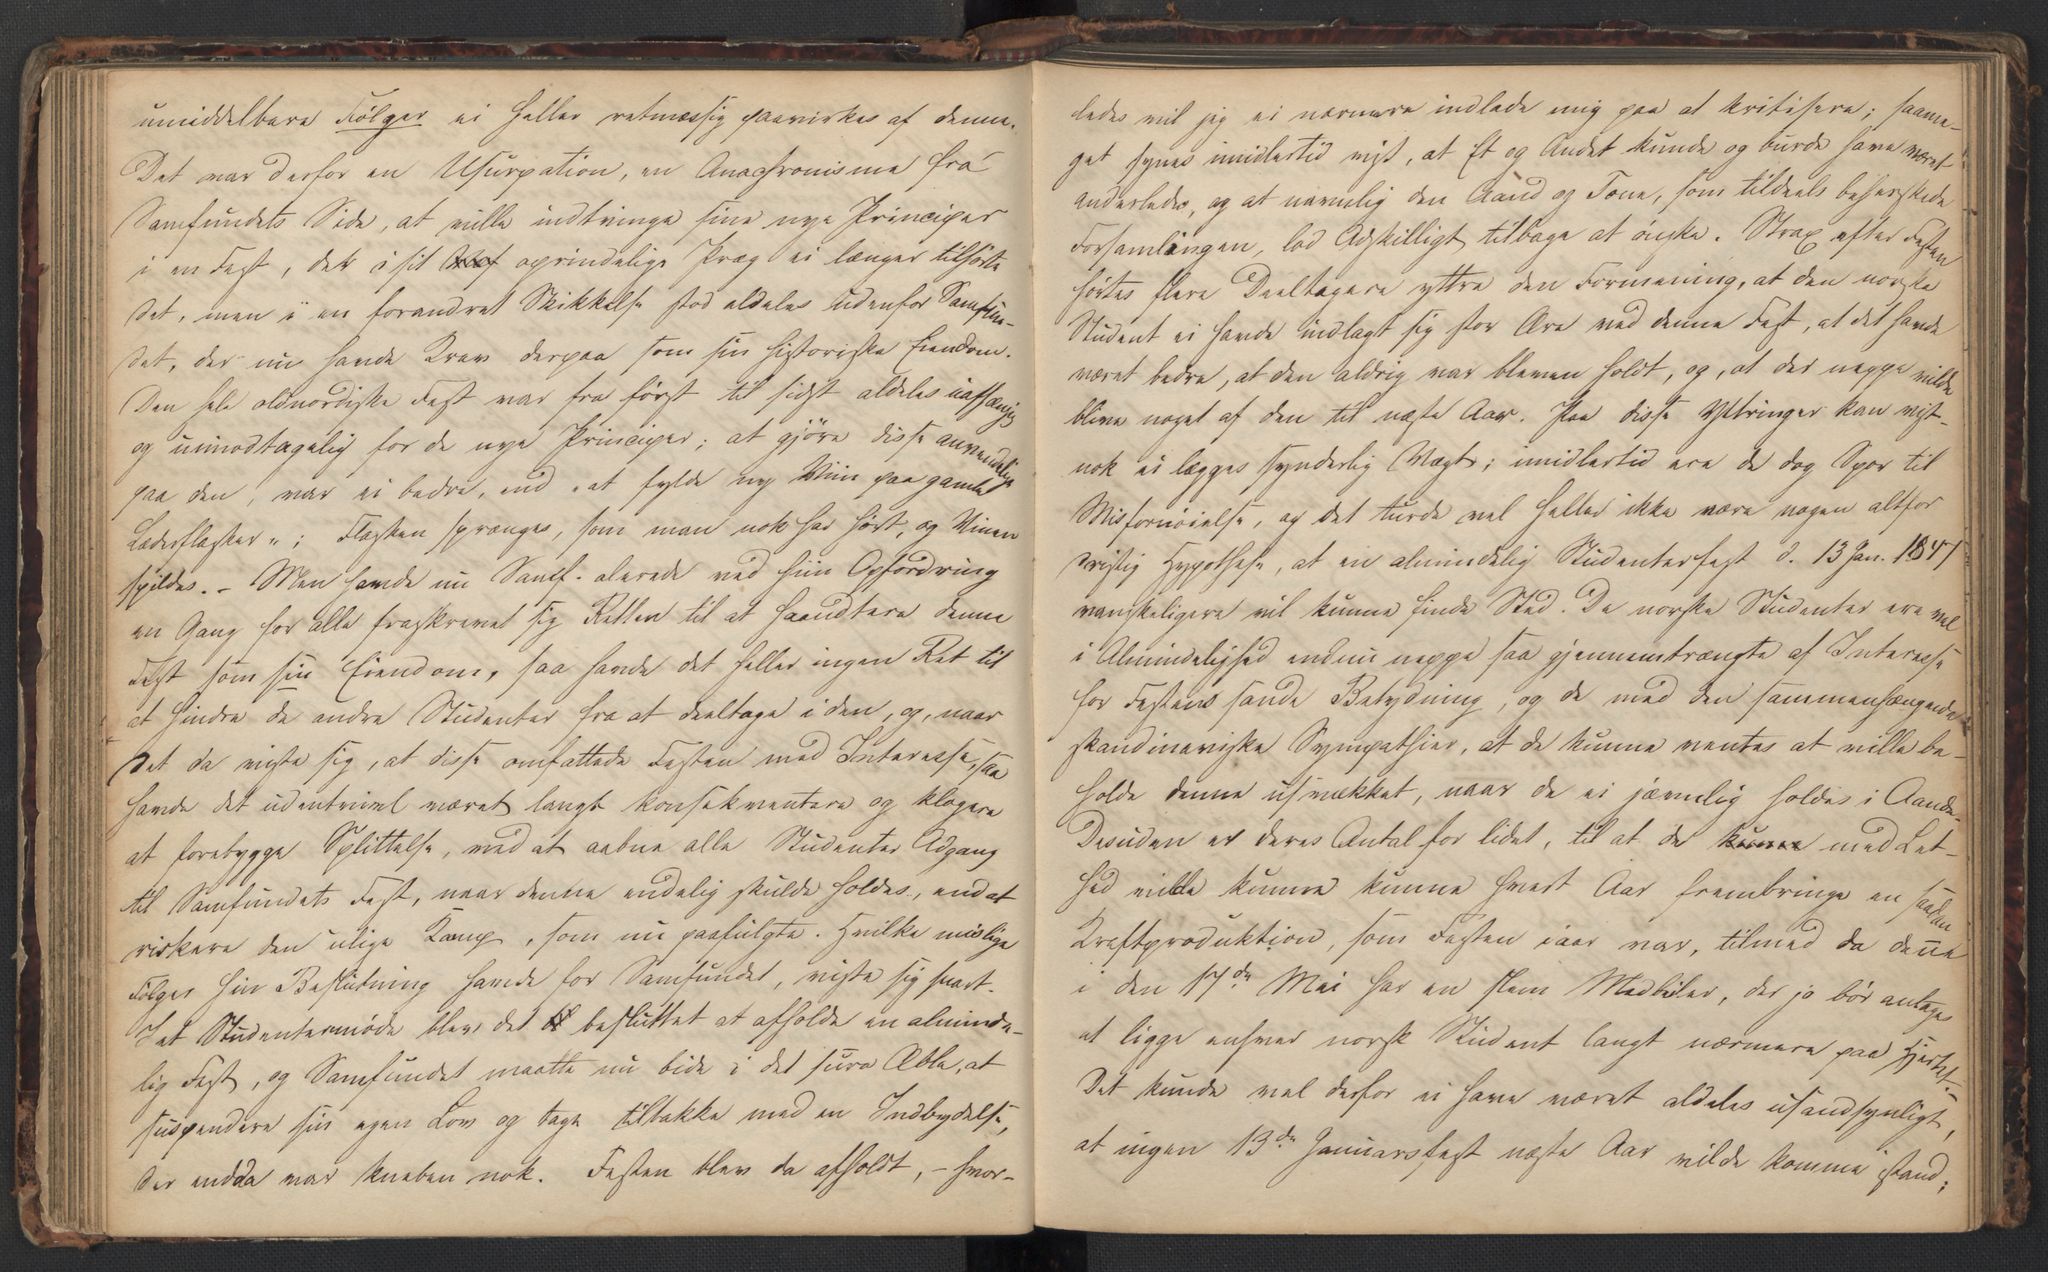 umiddelbare Følger ei heller retmæssig paavirkes af denne.
Det var derfor en Usurpation, en Anachronisme fra
Samfundets Side, at ville indtvinge sine nye Principer
i en Fest, der i sit oprindelige Præg ei længer tilhørte
det, men i en forandret Skikkelse stod aldeles udenfor Samfun-
det, der nu havde Krav derpaa som sin historiske Eiendom.
Den hele oldnordiske Fest var fra først til sidst aldeles uafhængig
og uimodtagelig for de nye Principer; at gjöre disse anvendelige
paa den, var ei bedre, end „at fylde ny Viin paa gamle
Læderflasker“; Flasken sprænges, som man nok har hört, og Vinen
spildes. – Men havde nu Samf. allerede ved hiin Opfordring
en Gang for alle fraskrevet sig Retten til at haandtere denne
Fest som sin Eiendom, saa havde det heller ingen Ret til
at hindre de andre Studenter fra at deeltage i den, og, naar
det da viste sig, at disse omfattede Festen med Interesse, saa
havde det udentvivl været langt konsekventere og klogere
at forebygge Splittelse, ved at aabne alle Studenter Adgang
til Samfundets Fest, naar denne endelig skulde holdes, end at
riskere den ulige Kamp, som nu paafulgte. Hvilke mislige
Følger hin Beslutning havde for Samfundet, viste sig snart.
I et Studentermöde blev det besluttet at afholde en alminde-
lig Fest, og Samfundet maatte nu bide i det sure Æble, at
suspendere sin egen Lov og tage tiltakke med en Indbydelse,
der endda var kneben nok. Festen blev da afholdt, – hvor-
ledes vil jeg ei nærmere indlade mig paa at kritisere; saame-
get synes imidlertid vist, at Et og Andet kunde og burde have været
anderledes, og at navnlig den Aand og Tone, som tildeels beherskede
Forsamlingen, lod Adskilligt tilbage at önske. Strax efter Festen
hörtes flere Deeltagere yttre den Formening, at den norske
Student ei havde indlagt sig stor Ære ved denne Fest, at det havde
været bedre, at den aldrig var bleven holdt, og, at der neppe vilde
blive noget af den til næste Aar. Paa disse Yttringer kan vist-
nok ei lægges synderlig Vægt; imidlertid ere de dog Spor til
Misfornöielse, og det turde vel heller ikke være nogen altfor
dristig Hypothese, at en almindelig Studenterfest d. 13 Jan. 1847
vanskeligere vil kunne finde Sted. De norske Studenter ere vel
i Almindelighed endnu neppe saa gjennemtrængte af Interesse
for Festens sande Betydning, og de med den sammenhængende
skandinaviske Sympathier, at de kunne ventes at ville be-
holde denne usvækket, naar de ei jævnlig holdes i Aande.
Desuden er deres Antal for lidet, til at de kunne med Let-
hed ville kunne kunne hvert Aar frembringe en saadan
Kraftproduktion, som Festen iaar var, tilmed da denne
i den 17de Mai har en slem Medbeiler, der jo bör antages
at ligge enhver norsk Student langt nærmere paa Hjertet.
Det kunde vel derfor ei have været aldeles usandsynligt,
at ingen 13de Januarsfest næste Aar vilde komme i stand;